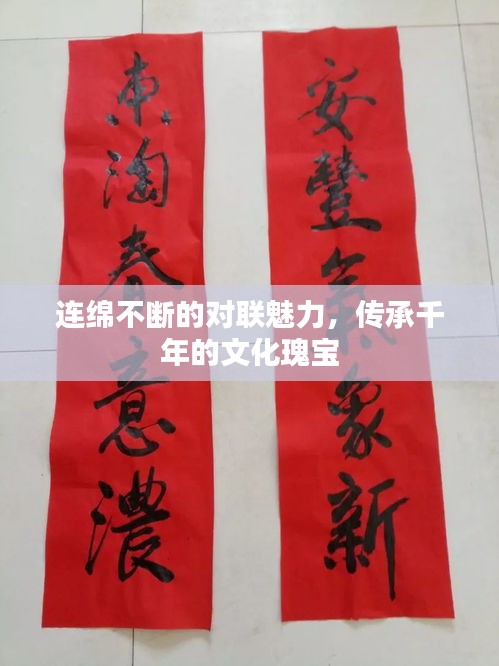 安豐氣象新
東淘春意濃
连绵不断的对联魅力，传承千
年的文化瑰宝